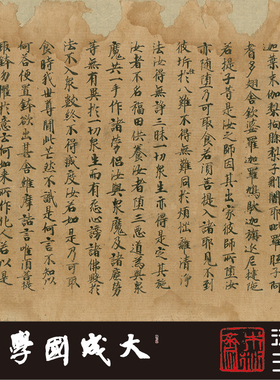 耆多翅舍欽婆羅迦羅鳩馱迦旃延尼揵陀
若提子等是汝之師因其出家彼師所墮汝
亦隨墮乃可取食若須菩提入諸耶見不到
彼岍住於八難不得無難同於煩惱離清淨
法汝得無諍三昧一切眾生亦得是定其施
汝者不名福田供養汝者墮三惡道為與眾
魔共一手作諸勞侶汝與眾魔及諸塵勞
等無有異於一切眾生而有怨心謗諸佛毀於
法不入眾數終不得滅度汝若如是乃可取
食時我世尊聞此茫然不識是何言不知以
何答便置鉢欲出其舍維摩詰言唯須菩提
取鉢勿懼於意云何如來所作化人若以是
大成國學